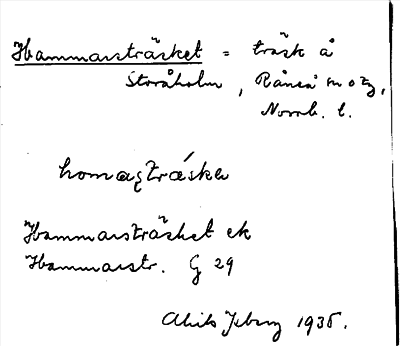 Hammarsträsket = träsk å
Storåholm, Råneå sn o tg,
Norrb. l.
homaçtráska
Hammarsträsket ek
Hammarstr. G 29
1935.